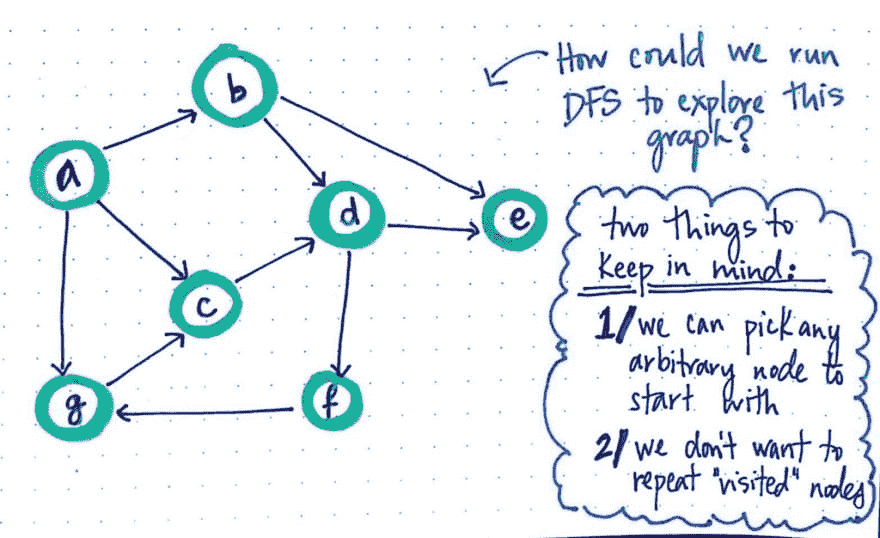 b
a
d
e
c
g
f
How could we run
DFS to explore this
graph?
two things to
keep in mind:
1/ we can pick any
arbitrary node to
start with
2/ we don't want to
repeat "visited" nodes